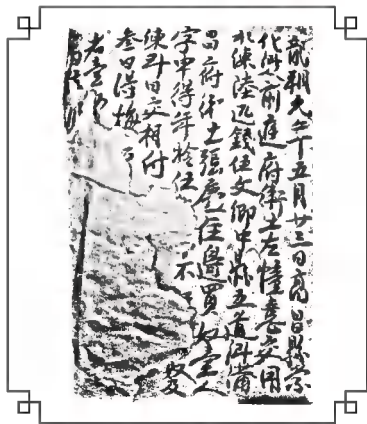 龍朔元年五月廿三日高昌縣崇
化鄉人前庭府衛士左憧憙交用
水練陸疋錢伍文柳中縣五道鄉蒲
昌府衛士張慶住邊買奴壹人
字申得年拾伍
練 日交相付
叁日得悔
者壹罰